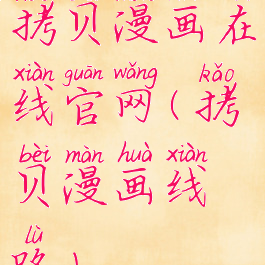 拷贝漫画在
xiàn guān wǎng kǎo
线官网(拷
bèi màn huà xiàn
贝漫画线
lù
路)